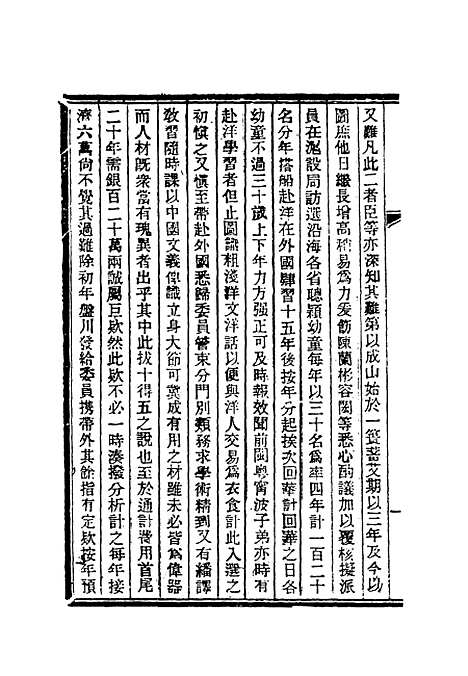 又難凡此二者臣等亦深知其難第以成山始於一簣蓄艾期以三年及今以
圖庶他日繼長增高稍易爲力爰飭陳蘭彬容閎等悉心酌議加以覆核擬派
員在滬設局訪選沿海各省聰穎幼童每年以三十名爲率四年計一百二十
名分年搭船赴洋在外國肄習十五年後按年分起挨次回華計回華之日各
幼童不過三十歲上下年力方强正可及時報效聞前閩粵甯波子弟亦時有
赴洋學習者但止圖識粗淺洋文洋話以便與洋人交易爲衣食計此入選之
初愼之又愼至帶赴外國悉歸委員管束分門別類務求學術精到又有繙譯
敎習隨時課以中國文義俾識立身大節可冀成有用之材雖未必皆爲偉器
而人材旣衆當有瑰異者出乎其中此拔十得五之說也至於通計費用首尾
二十年需銀百二十萬兩誠屬巨欵然此欵不必一時湊撥分析計之每年接
濟六萬尙不覺其過難除初年盤川發給委員携帶外其餘指有定欵按年預
一